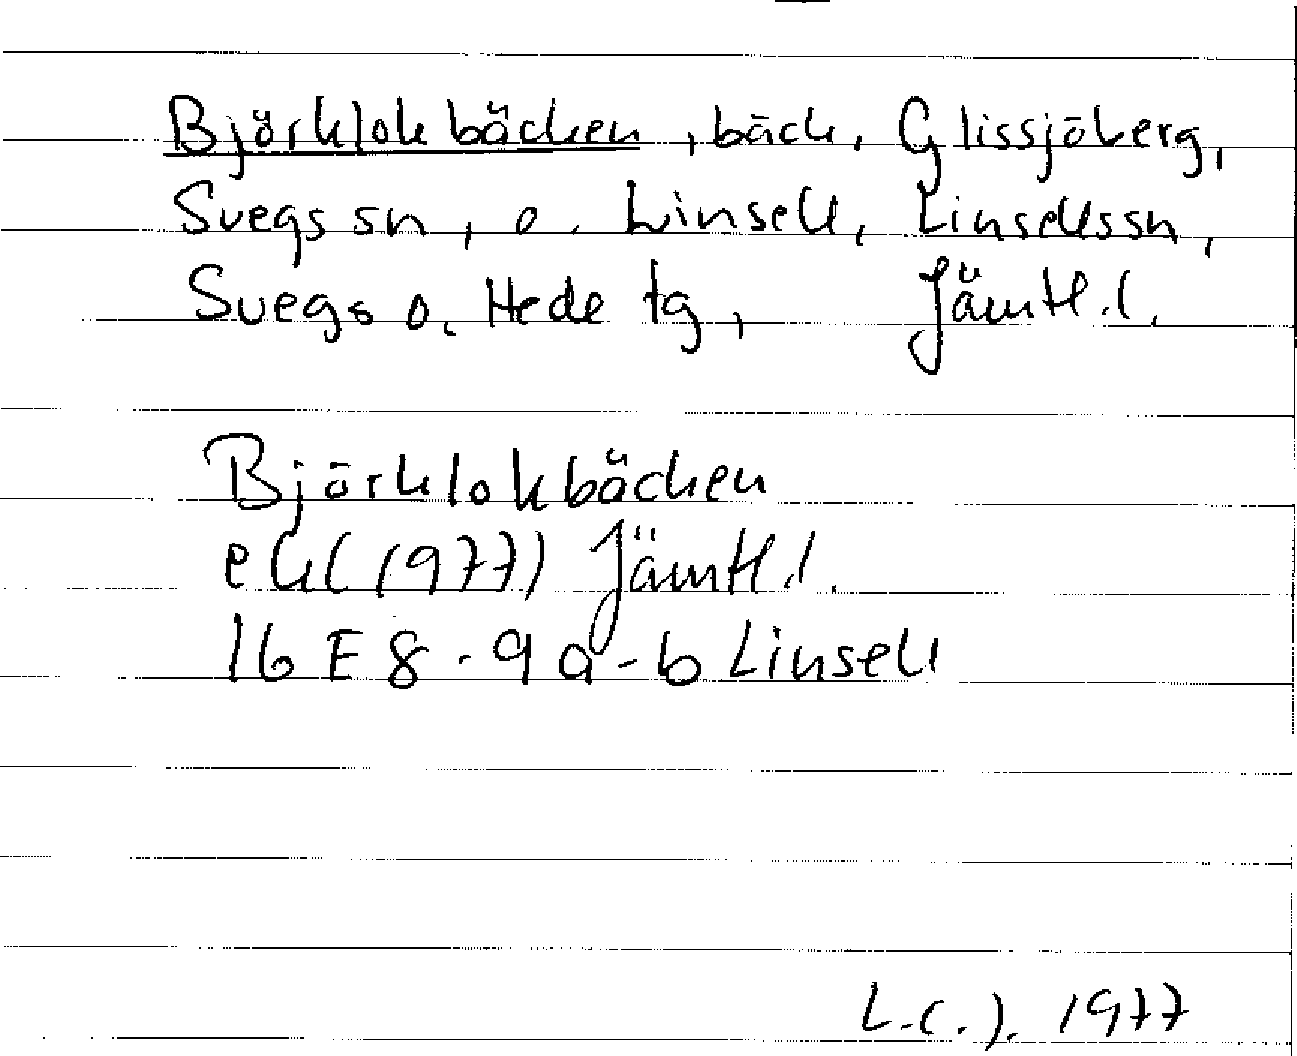 Björklokbäcken, bäck, Glissjöberg,
Svegs sn, o. Linsell, Linsells sn,
Svegs o. Hede tg, Jämtl. l.
Björklokbäcken
ekl (1977) Jämtl. l.
16 E 8-9 a-b Linsell
1977